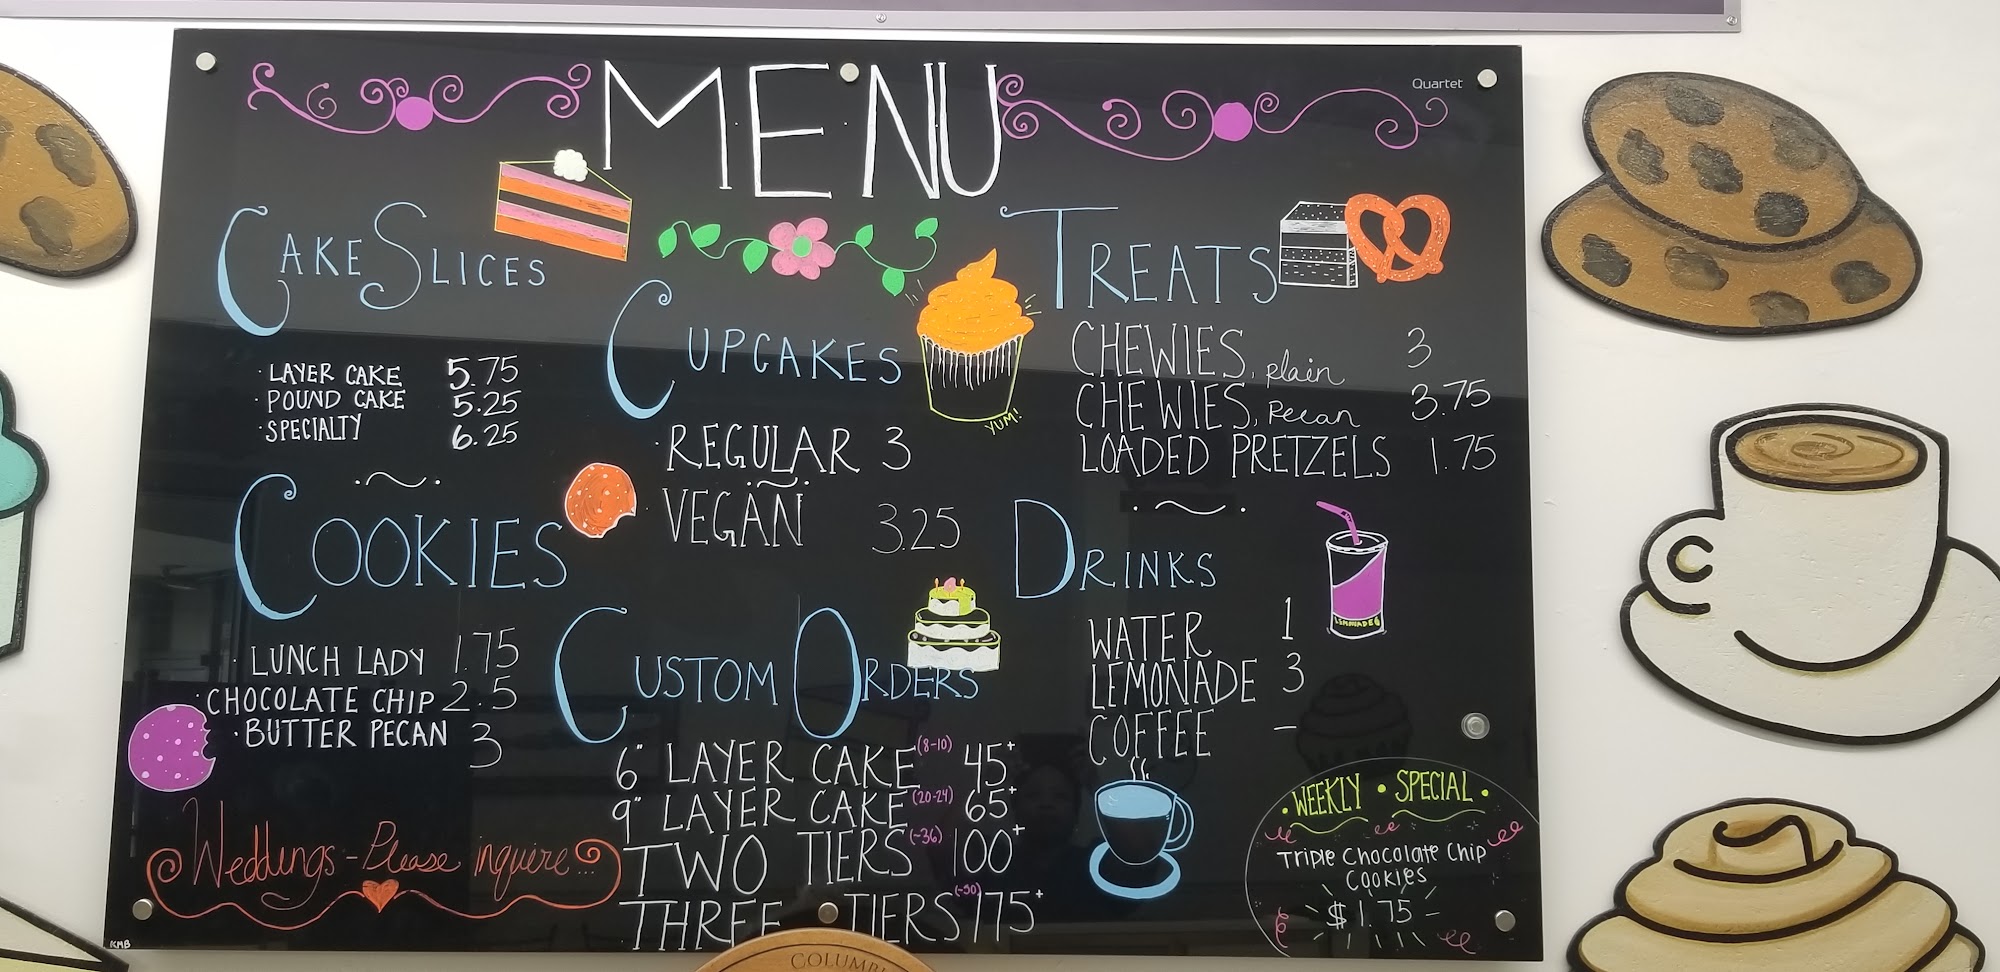 MENU
Quartet
CAKE SLICES
· LAYER CAKE 5.75
· POUND CAKE 5.25
· SPECIALTY 6.25
COOKIES
· LUNCH LADY 1.75
· CHOCOLATE CHIP 2.5
· BUTTER PECAN 3
Weddings - Please inquire...
KMB
CUPCAKES
YUM!
· REGULAR 3
VEGAN 3.25
CUSTOM ORDERS
6" LAYER CAKE (8-10) 45+
9" LAYER CAKE (20-24) 65+
TWO TIERS (~36) 100+
THREE TIERS (~50) 175+
TREATS
CHEWIES, plain 3
CHEWIES, Pecan 3.75
LOADED PRETZELS 1.75
DRINKS
LEMONADE
WATER 1
LEMONADE 3
COFFEE –
· WEEKLY · SPECIAL ·
Triple Chocolate Chip
Cookies
$1.75